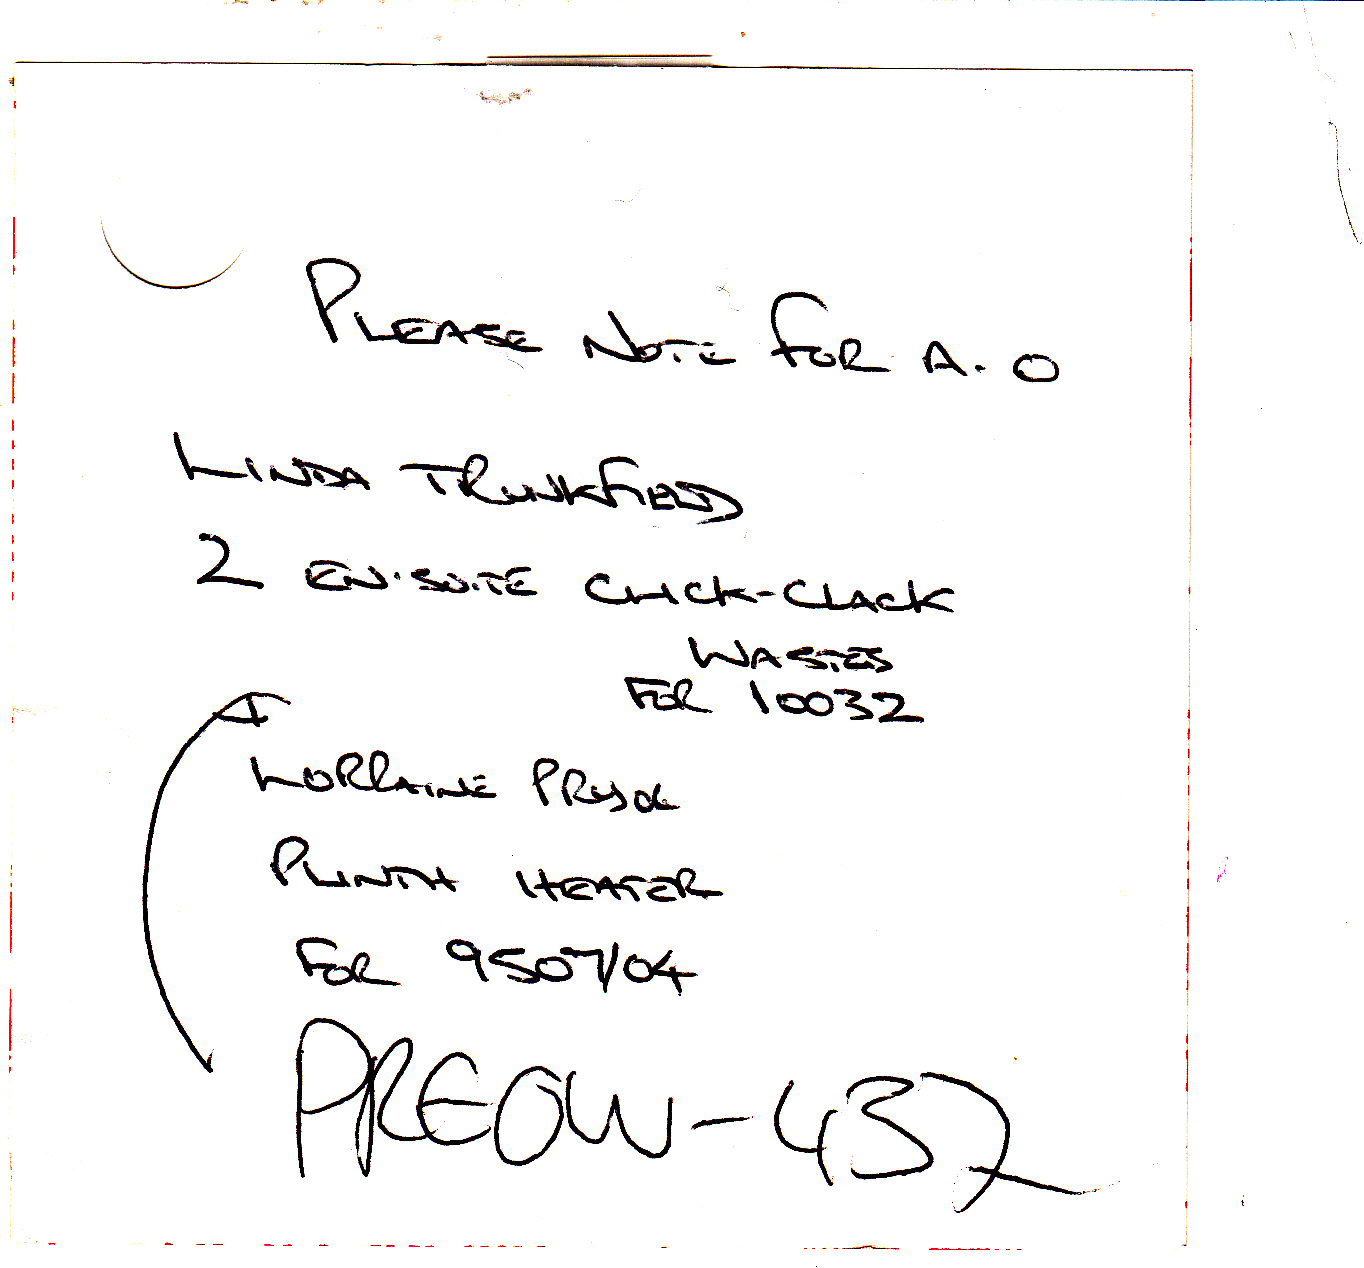 PLEASE NOTE FOR A.O
LINDA TRUNKFIELD
2 EN-SUITE CLICK-CLACK
WASTES
FOR 10032
LORRAINE PRYOR
PLINTH HEATER
FOR 9507/04
PREOW-432